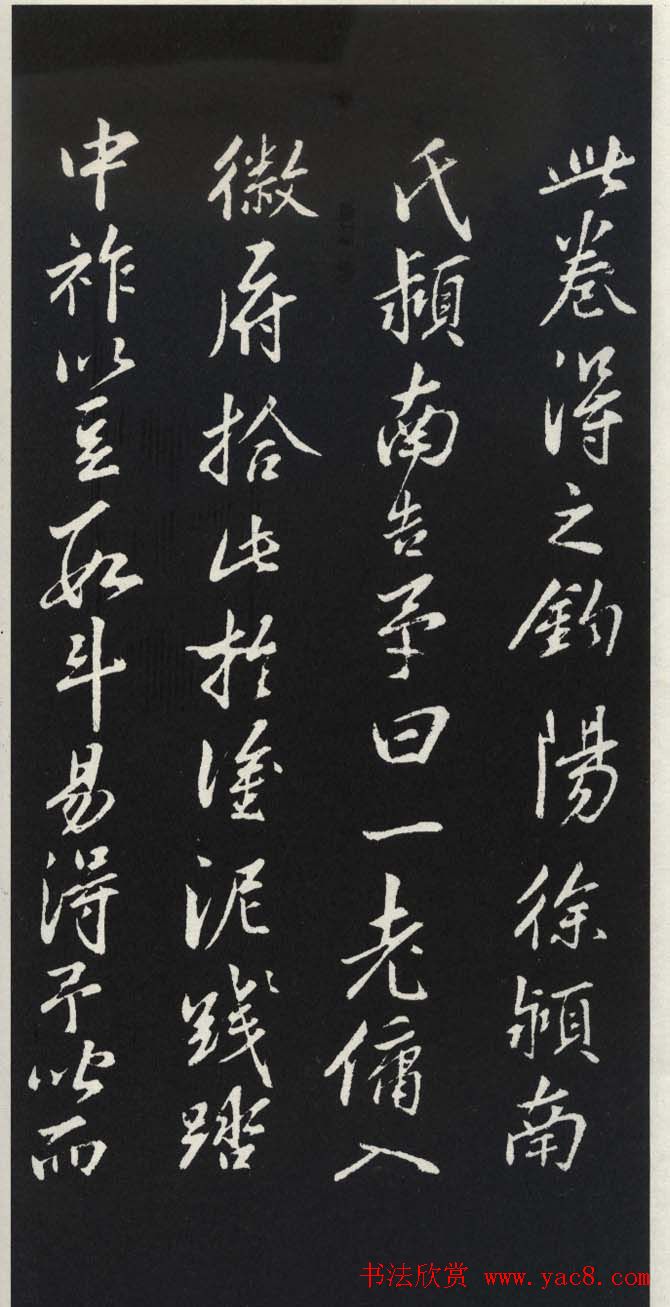 此卷得之鈞陽徐潁南
氏潁南告予曰一老傭入
徽府拾此於塗泥踐踏
中祚以豆數斗易得予而
书法欣赏 www.yac8.com